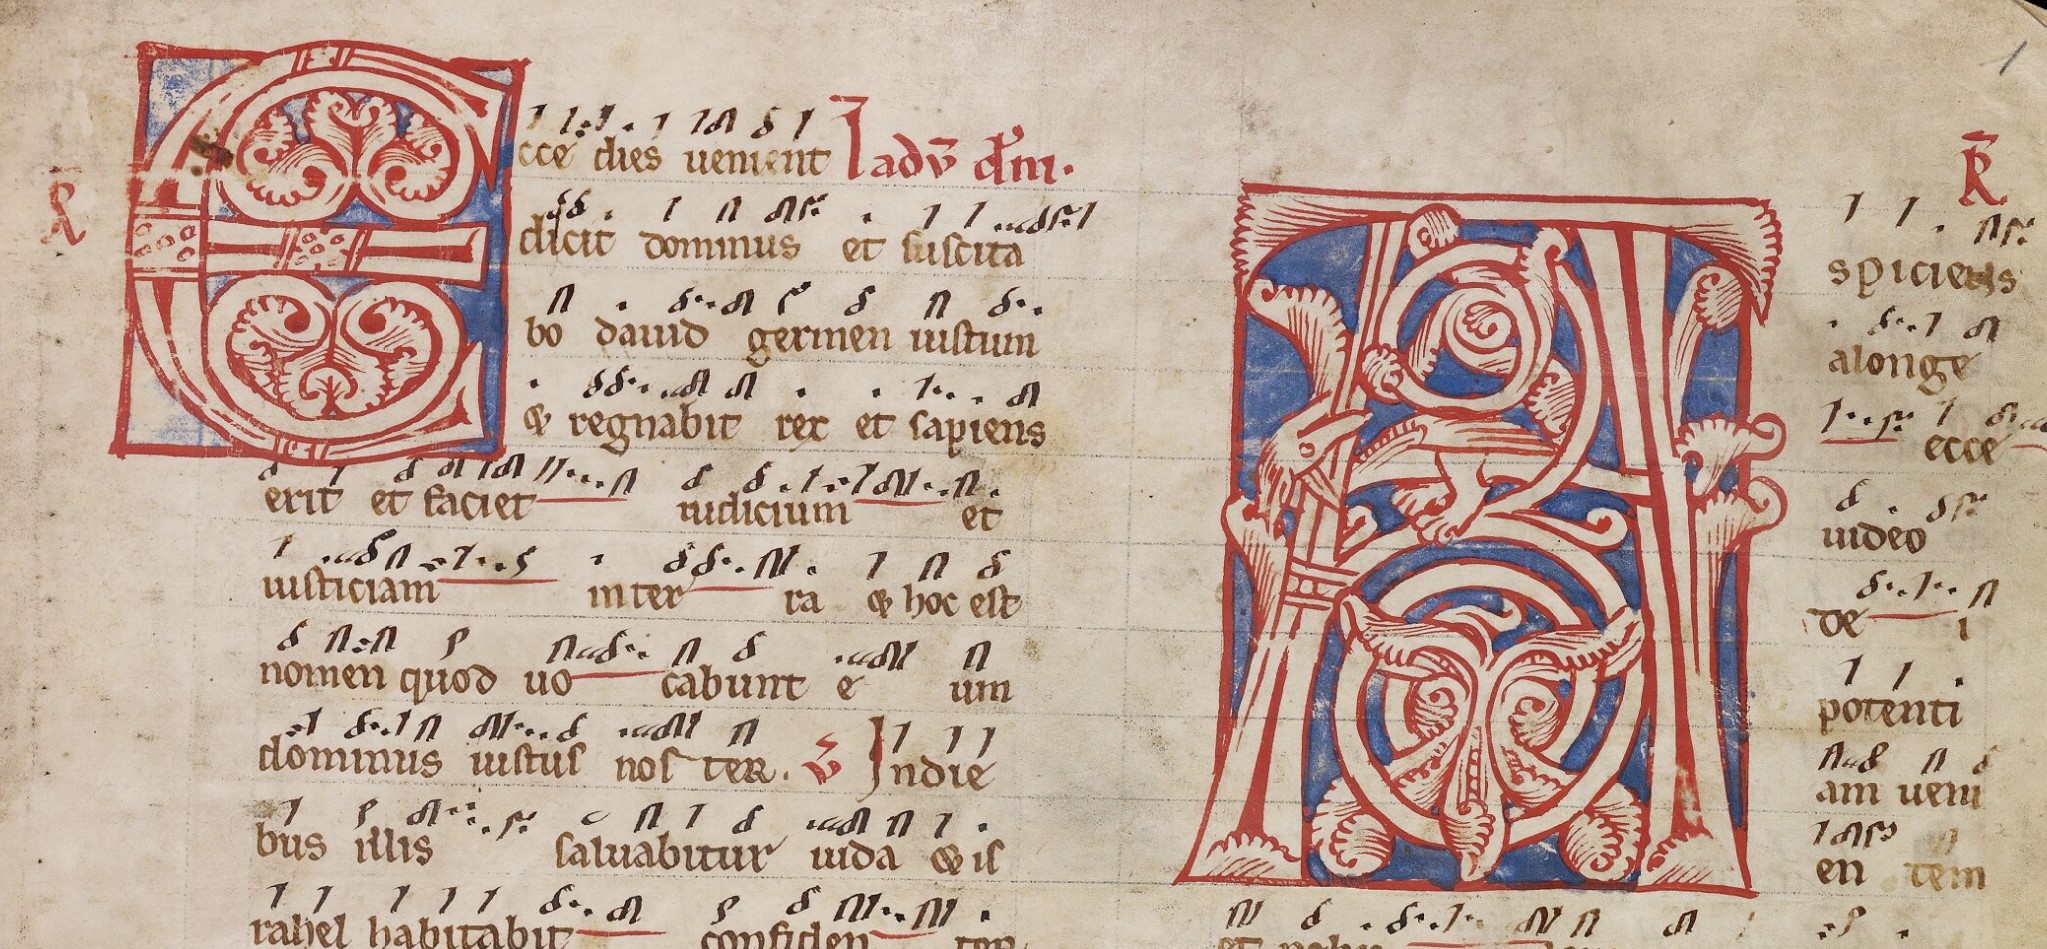 R
Ecce dies uenient I adū dn̄i.
dicit dominus et suscita
bo dauid germen iustum
& regnabit rex et sapiens
erit et faciet iudicium et
iusticiam in ter ra & hoc est
nomen quod uo cabunt e um
dominus iustus nos ter. V̄ Indie
bus illis saluabitur iuda & is
rahel habitabit confiden ter
1
R
Aspiciens
alonge
ecce
uideo
de i
potenti
am ueni
en tem
et